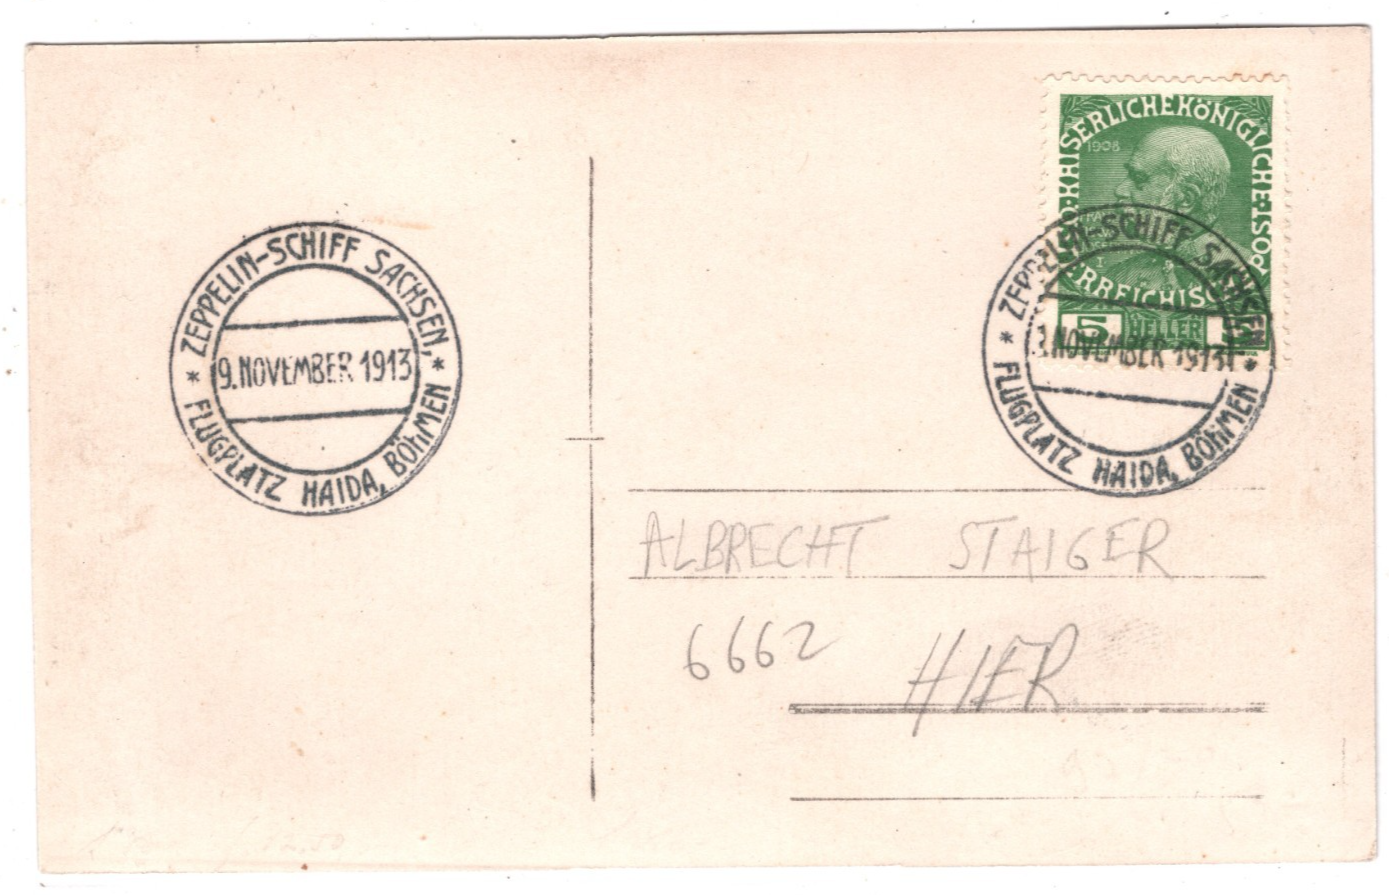 ZEPPELIN-SCHIFF SACHSEN,
9. NOVEMBER 1913
* FLUGPLATZ HAIDA, BÖHMEN *
KAISERLICHE KÖNIGLICHE
ÖSTERREICHISCHE POST
1908
5 HELLER 5
ZEPPELIN-SCHIFF SACHSEN
NOVEMBER 1913
* FLUGPLATZ HAIDA, BÖHMEN *
ALBRECHT STAIGER
6662 HIER